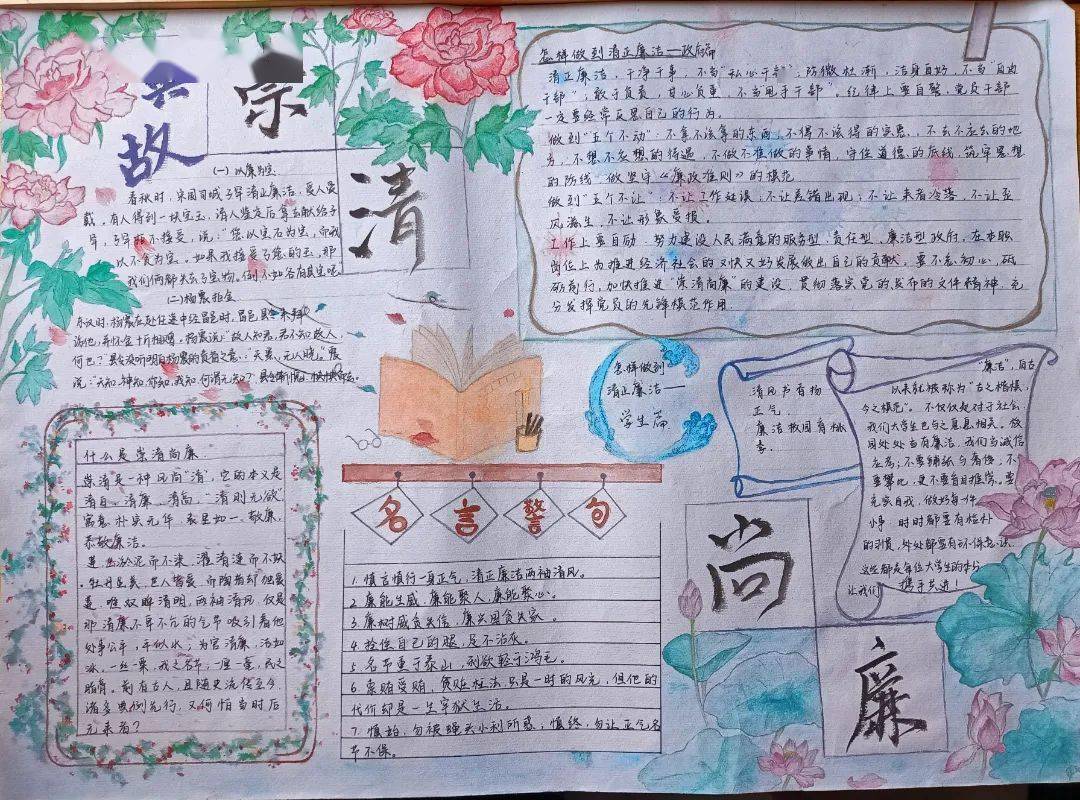 崇
清
尚
廉
故
(一)以廉为宝
春秋时,宋国司城子罕清正廉洁,受人爱
戴。有人得到一块宝玉,请人鉴定后拿去献给子
罕,子罕拒不接受,说:“您以宝石为宝,而我
以不贪为宝。如果我接受了您的玉,那
我们俩都失去了宝物。倒不如各有其宝呢
(二)杨震拒金
东汉时,杨震在赴任途中经昌邑时,昌邑县令来拜
访他,并怀金十斤相赠。杨震说:“故人知君,君不知故人,
何也?”县令没听明白杨震的责备之意:“天黑,无人晓。”震
说:“天知,神知,你知,我知,何谓无知?”
什么是崇清尚廉
崇清是一种风尚“清”,它的本义是
清白、清廉、清尚,“清则无欲”
寓意朴实无华、表里如一、敬廉、
恭敬廉洁。
莲出淤泥而不染,濯清涟而不妖
牡丹虽美,世人皆爱,而陶翁却独爱
莲,唯双眸清明,两袖清风,仅是
那清廉不卑不亢的气节吸引着他
处事公平,平似水;为官清廉,洁如
冰,一丝一粟,我之名节;一厘一毫,民之
脂膏。前有古人,且随史流传至今
诸多典例先行,又何怕当时后
无来者?
名言警句
1. 慎言慎行一身正气,清正廉洁两袖清风。
2. 廉能生威,廉能聚人,廉能聚心。
3. 廉树威贪失信,廉兴国贪失家。
4. 拴住自己的腿,是不沾灰。
5. 名节重于泰山,利欲轻于鸿毛。
6. 索贿受贿,贪赃枉法,只是一时的风光,但他的
代价却是一生牢狱生活。
7. 慎始,勿被蝇头小利所惑;慎终,勿让正气名
节不保。
怎样做到清正廉洁—政府篇
清正廉洁,干净干事,不当“私心干部”;防微杜渐,洁身自好,不当“自由
干部”;敢于负责,甘心负重,不当“甩手干部”。纪律上要自警,党员干部
一定要经常反思自己的行为。
做到“五个不动”:不拿不该拿的东西,不得不该得的实惠,不去不应去的地
方,不想不应想的待遇,不做不准做的事情,守住道德的底线,筑牢思想
的防线,做坚守《廉政准则》的模范
做到“五个不让”:不让工作耽误;不让差错出现;不让来者冷落,不让歪
风滋生,不让形象受损。
工作上要自励,努力建设人民满意的服务型、责任型、廉洁型政府,在本职
岗位上为推进经济社会的又快又好发展做出自己的贡献,要不忘初心,砥
砺前行,加快推进“崇清尚廉”的建设,贯彻落实党的发布的文件精神,充
分发挥党员的先锋模范作用
怎样做到
清正廉洁—
学生篇
清风书有杨
正气,
廉洁救国有标
“廉洁”,自古
以来就被称为“古之楷模,
今之模范”。不仅仅是对于社会,
我们大学生也与之息息相关。校
园处处当有廉洁,我们当诚信
应考;不要铺张与奢侈,不
要攀比,更不要盲目推崇。要
充实自我,做好每一件
小事,时时都要有检朴
的习惯,处处都要有环保意识,
这些都是每位大学生的本分
让我们携手共进!